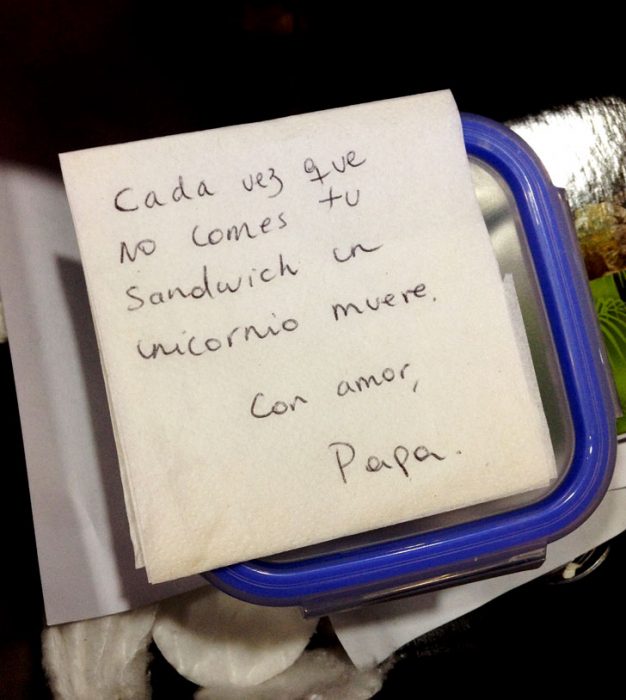 Cada vez que
no comes tu
Sandwich un
unicornio muere.
Con amor,
Papa.